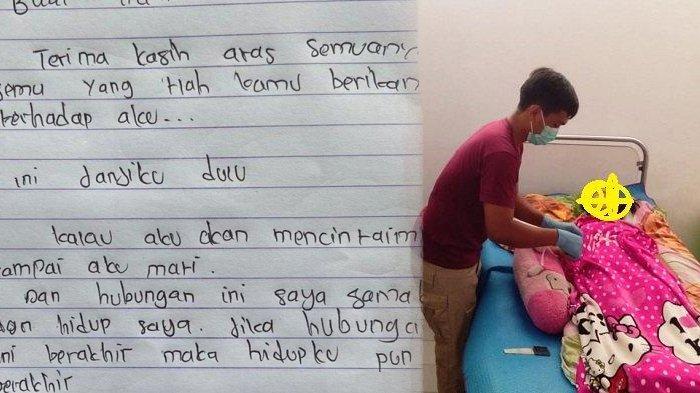 Terima kasih atas semuany
semu yang tlah kamu berikan
terhadap aku...
ini janjiku dulu
kalau aku akan mencintaim
sampai aku mati.
Dan hubungan ini saya sama
dgn hidup saya. Jika hubunga
ini berakhir maka hidupku pun
berakhir